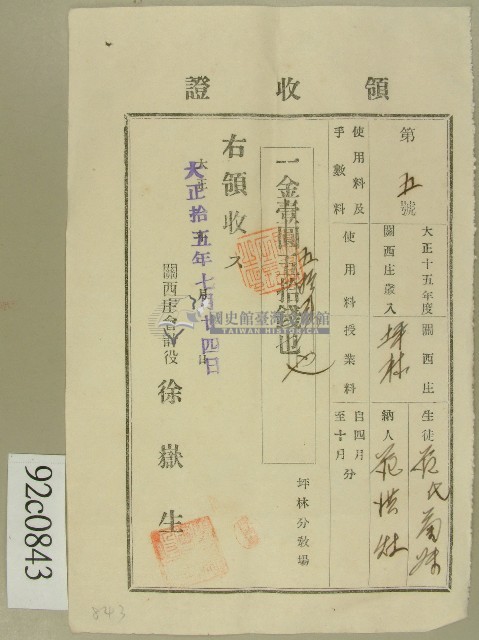 領收證
第五號
大正十五年度 關西庄
關西庄歲入 坪林
生徒 范氏菊妹
納人 范洪灶
使用料及
手數料
使用料
授業料
自四月
至十月
分
一金壹圓五拾錢也
五拾
也
坪林分敎場
右領收ス
大正拾五年七月廿四日
關西庄會計役 徐嶽生
國史館臺灣文獻館
TAIWAN HISTORICA
92c0843
843